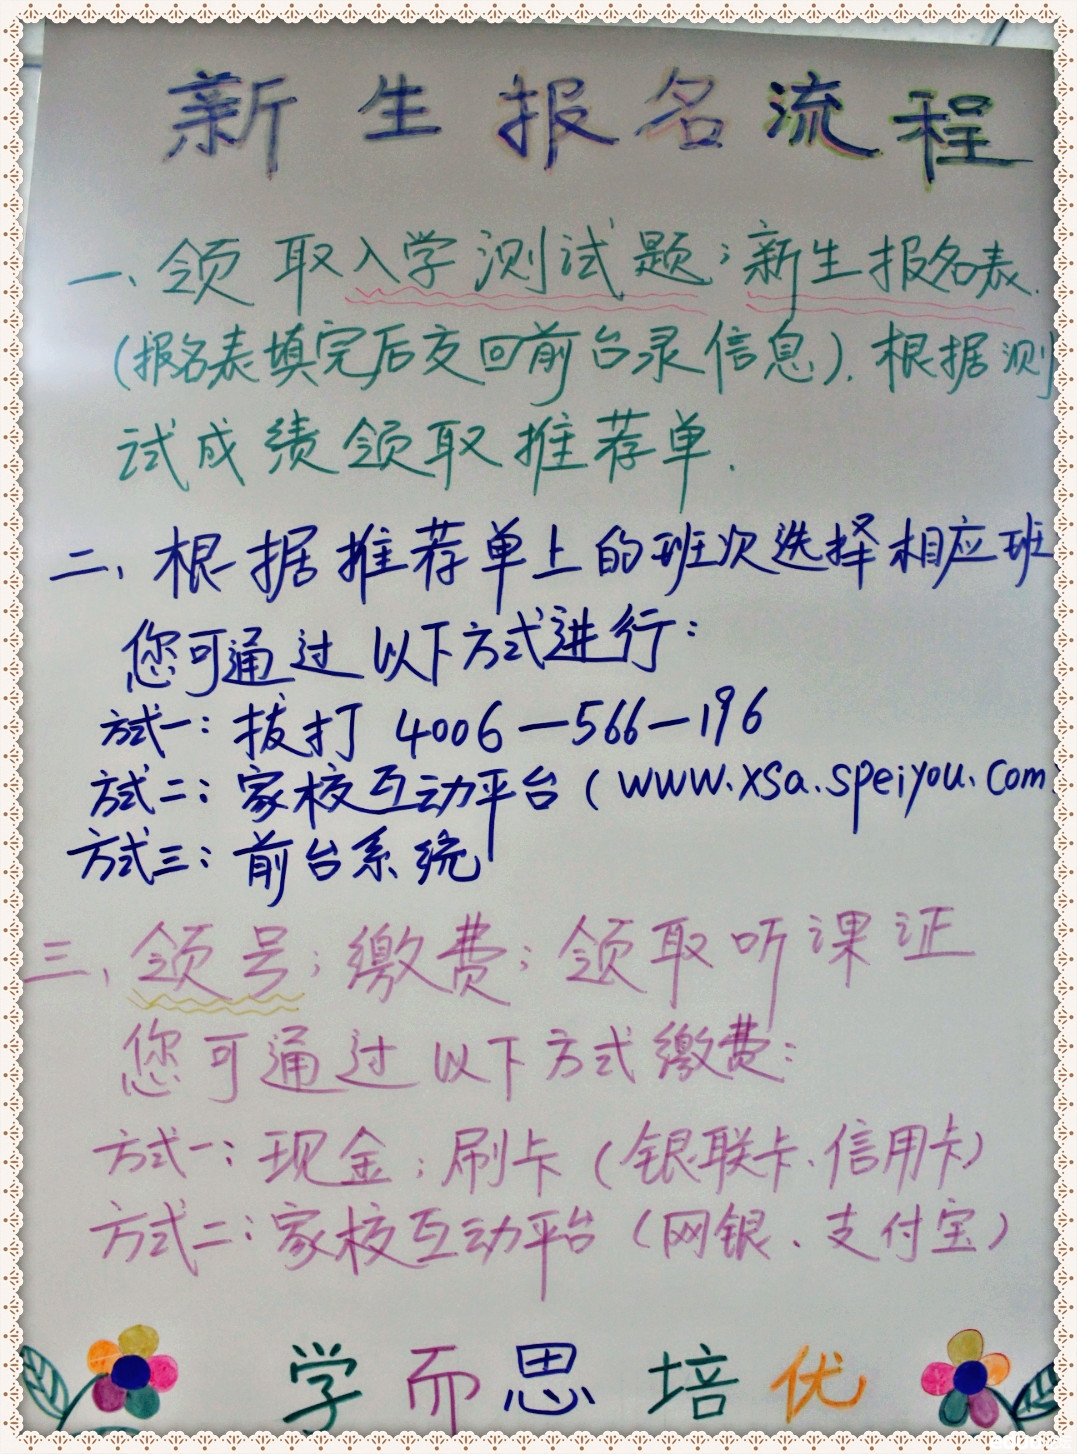 新生报名流程
一、领取入学测试题；新生报名表.
(报名表填完后交回前台录信息). 根据测
试成绩领取推荐单.
二、根据推荐单上的班次选择相应班
您可通过以下方式进行：
方式一：拔打 4006-566-196
方式二：家校互动平台 (www.xsa.speiyou.com
方式三：前台系统
三、领号；缴费；领取听课证
您可通过以下方式缴费：
方式一：现金；刷卡 (银联卡、信用卡)
方式二：家校互动平台 (网银、支付宝)
学而思培优